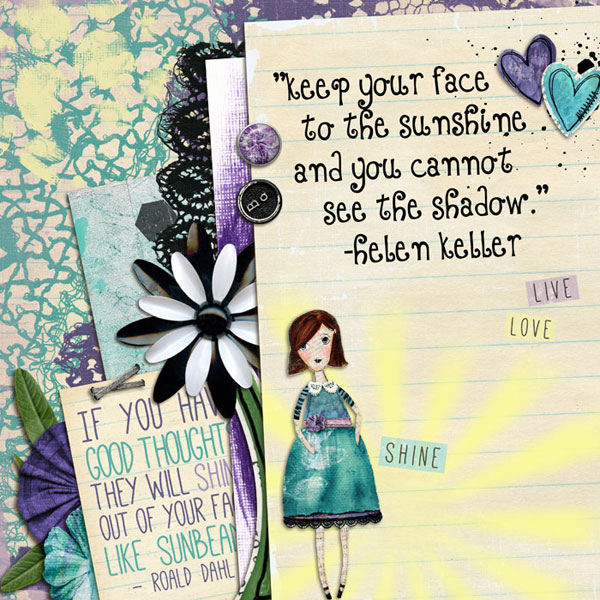 "keep your face
to the sunshine
and you cannot
see the shadow."
-helen keller
LIVE
LOVE
SHINE
IF YOU HAV
GOOD THOUGHT
THEY WILL SHIN
OUT OF YOUR FA
LIKE SUNBEAM
- ROALD DAHL